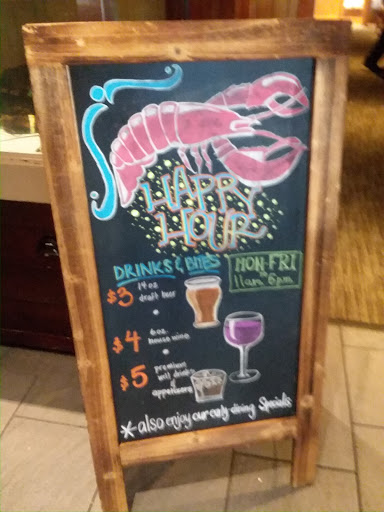 HAPPY
HOUR
DRINKS & BITES
MON-FRI
11am to 6pm
$3 14oz
draft beer
$4 6oz
house wine
$5 premium
well drinks
&
appetizers
*also enjoy our early dining Specials